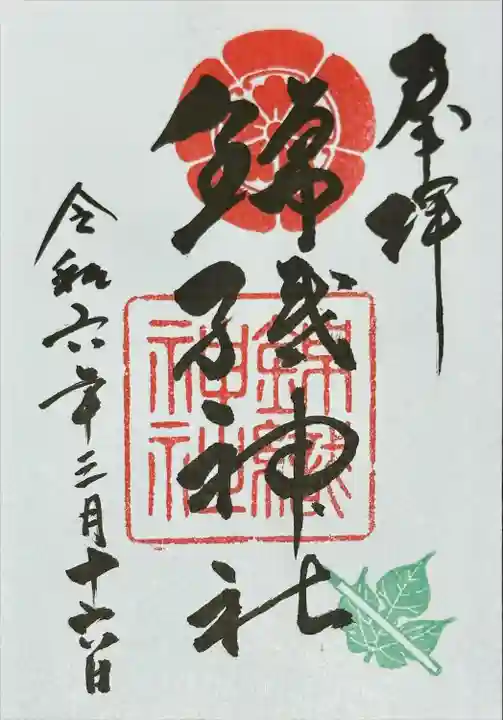 奉拝
錦織神社
錦織
神社
令和六年三月十六日